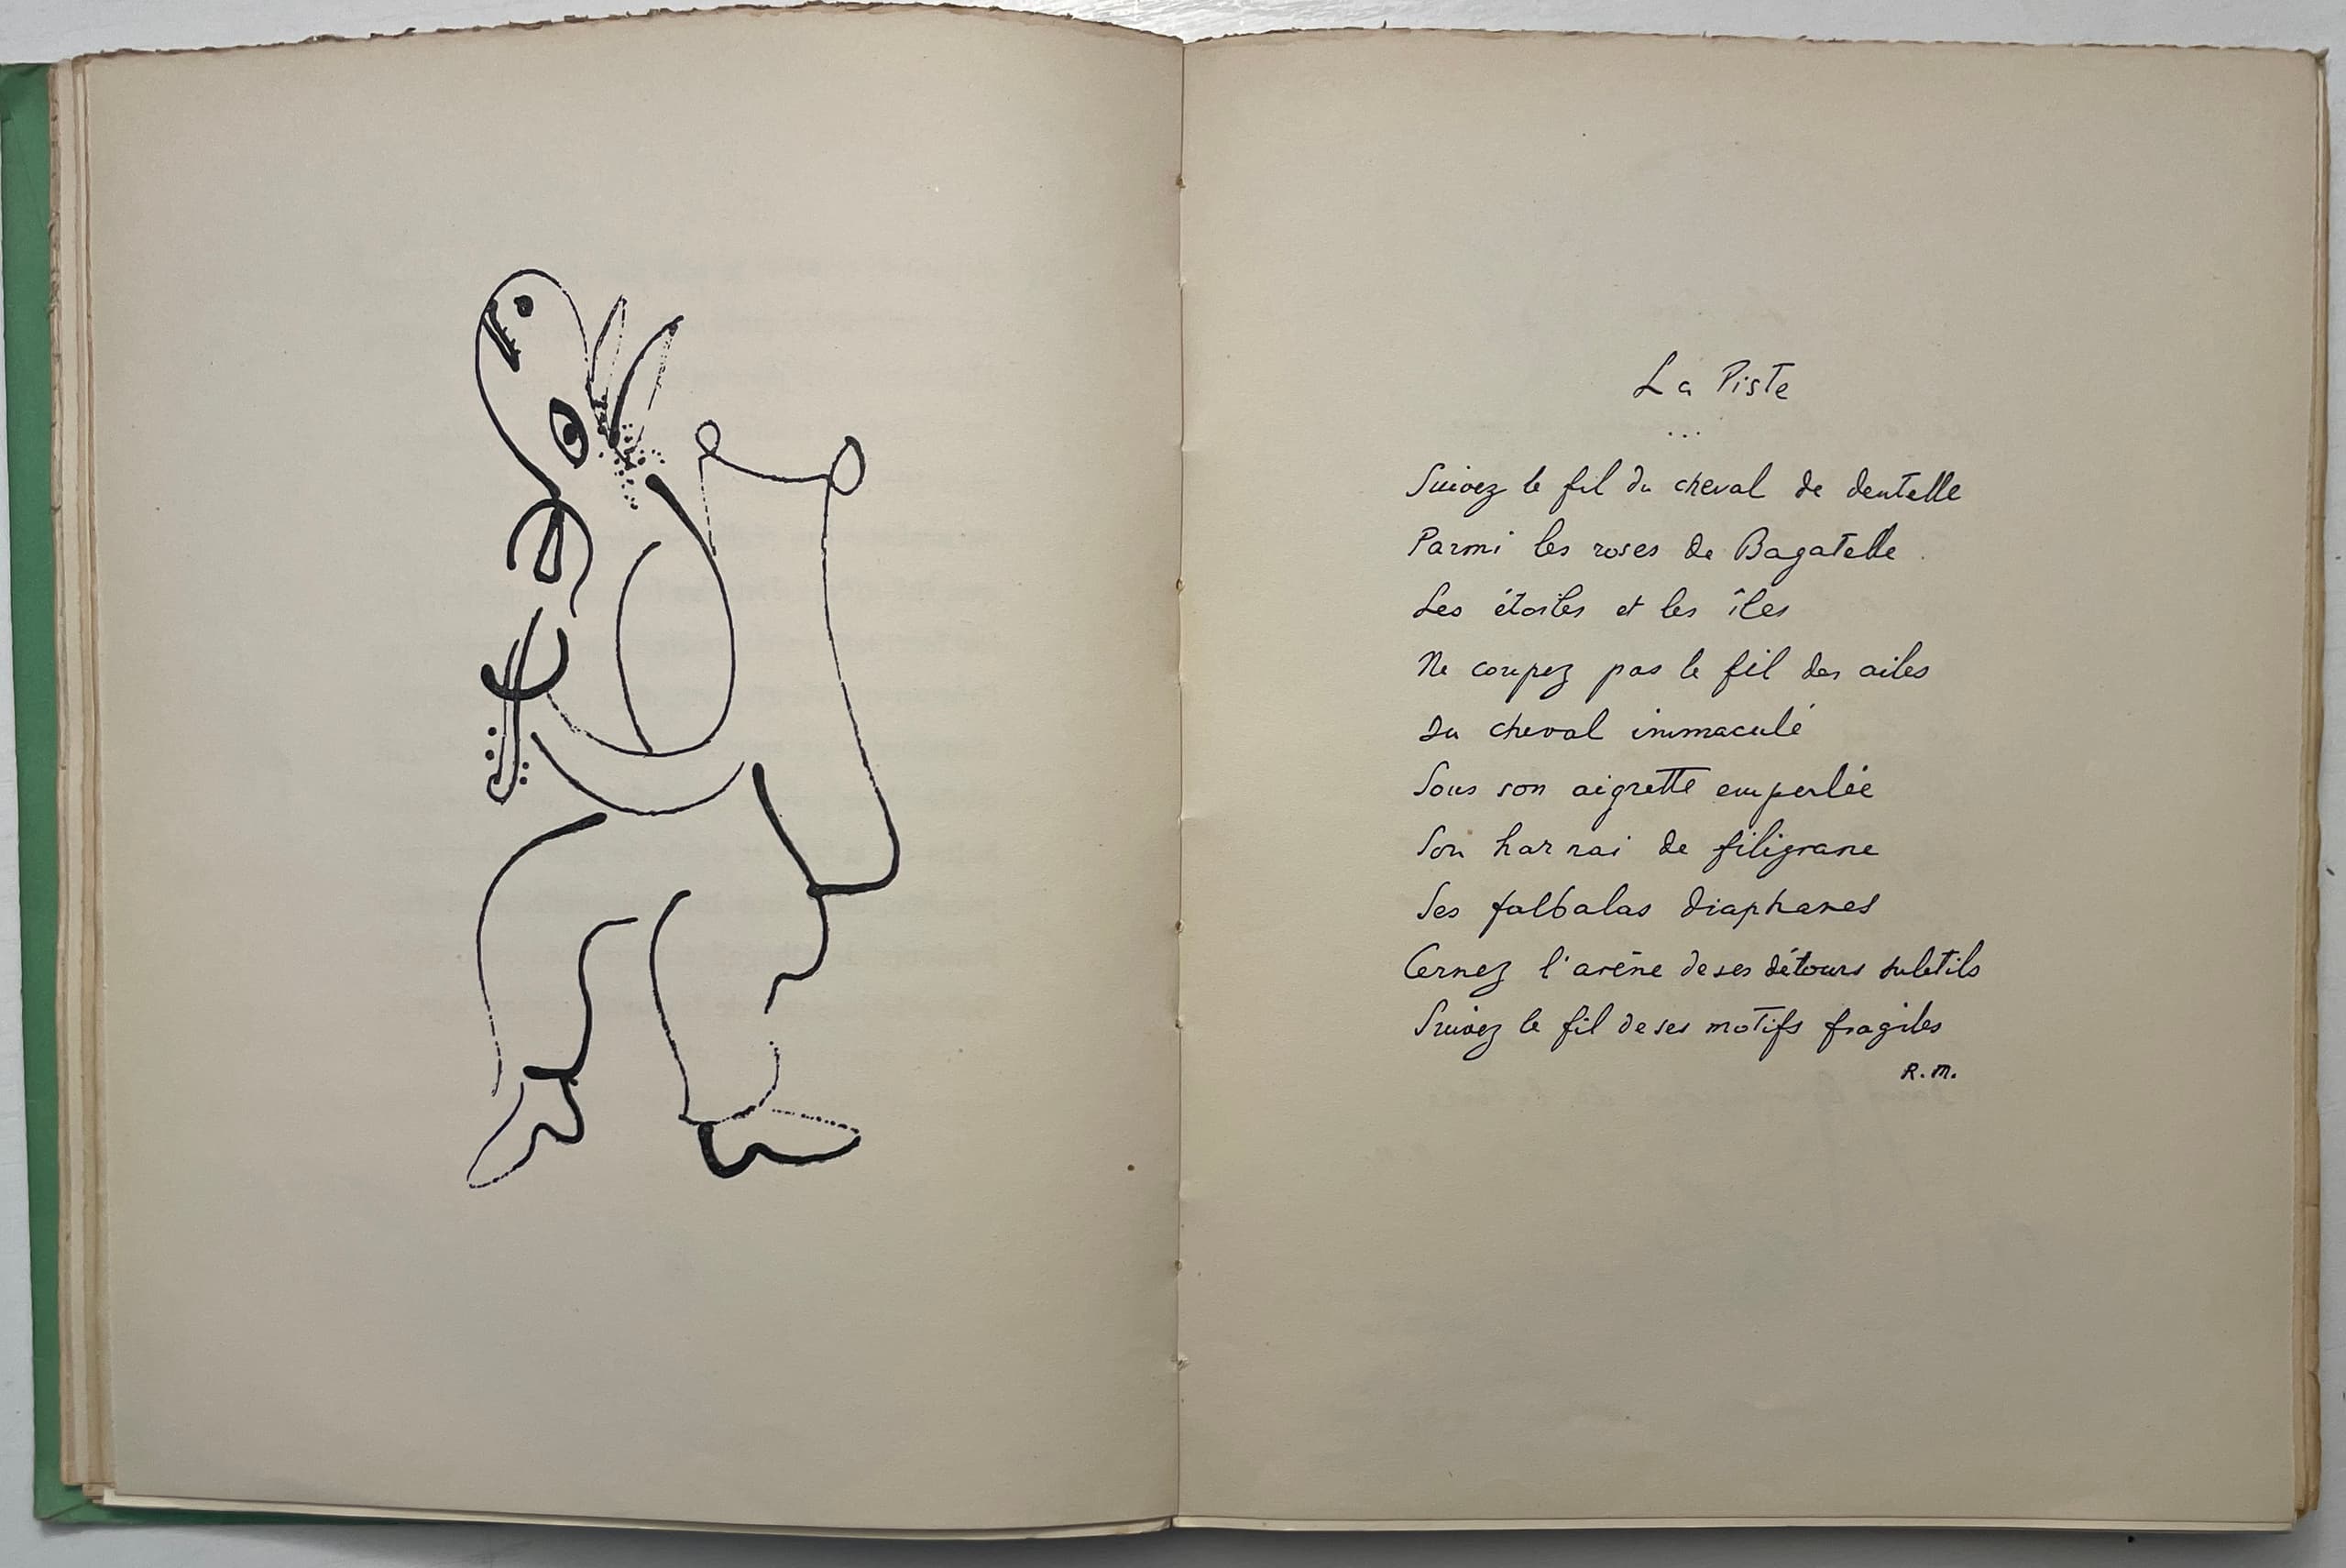 La Piste
...
Suivez le fil du cheval de dentelle
Parmi les roses de Bagatelle.
Les étoiles et les îles
Ne coupez pas le fil des ailes
Du cheval immaculé
Sous son aigrette emperlée
Son harnai de filigrane
Ses falbalas diaphanes
Cernez l'arène de ses détours subtils
Suivez le fil de ses motifs fragiles
R.M.